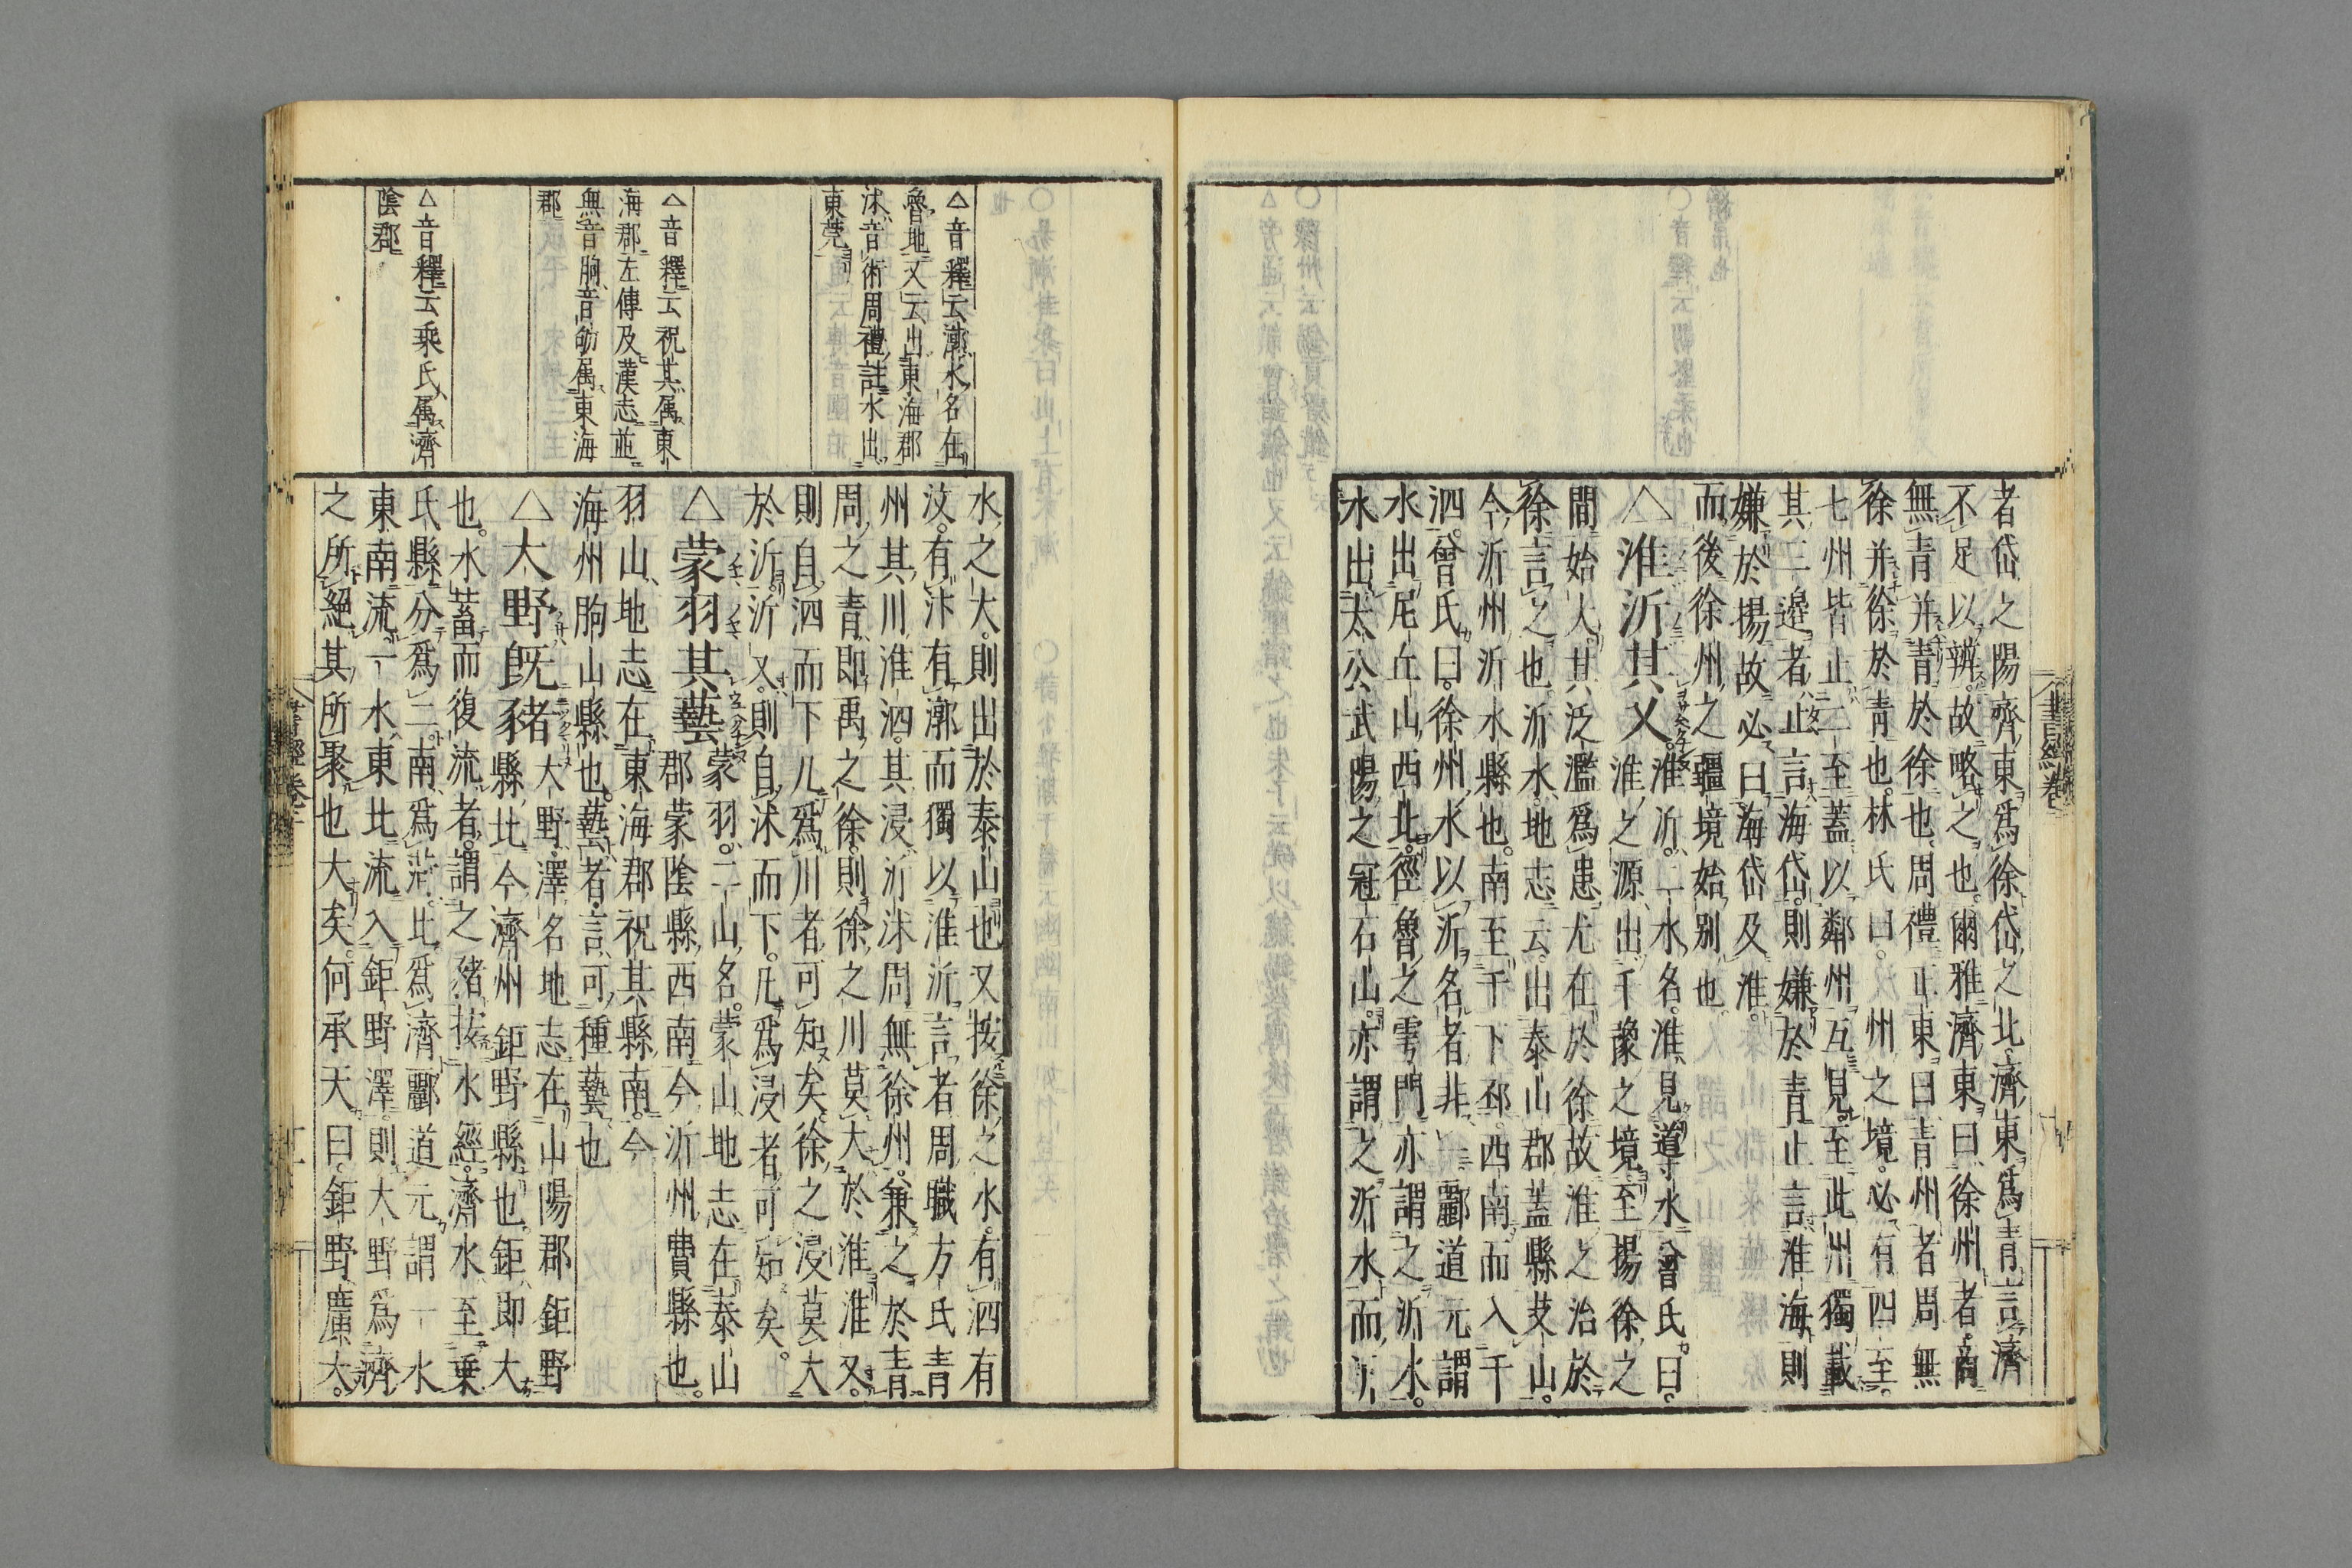 者岱之陽濟東爲徐岱之北濟東爲青言濟
不足以辨故略之也爾雅濟東曰徐州者商
無青并青於徐也周禮正東曰青州者周無
徐并徐於青也林氏曰州之境必有四至
七州皆止二至蓋以鄰州互見至此州獨載
其三邊者止言海岱則嫌於青止言淮海則
嫌於揚故必曰海岱及淮
而後徐州之疆境始別也
△淮沂其乂淮沂二水名淮見導水曾氏曰
淮之源出于豫之境至揚徐之
間始大其泛濫爲患尤在於徐故淮之治於
徐言之也沂水地志云出泰山郡蓋縣艾山
今沂州沂水縣也南至于下邳西南而入于
泗曾氏曰徐州水以沂名者非一酈道元謂
水出尼丘山西北徑魯之雩門亦謂之沂水
水出太公武陽之冠石山亦謂之沂水而沂
△音釋云漷水名在
魯地又云出東海郡
沭音術周禮註水出
東莞
△音釋云祝其属東
海郡左傳及漢志並
無音朐音劬属東海
郡
△音釋云乘氏属濟
陰郡
水之大則出於泰山也又按徐之水有泗有
汶有汴有漷而獨以淮沂言者周職方氏青
州其川淮泗其浸沂沭周無徐州兼之於青
周之青即禹之徐則徐之川莫大於淮淮乂
則自泗而下凡爲川者可知矣徐之浸莫大
於沂沂乂則自沭而下凡爲浸者可知矣
△蒙羽其藝蒙羽二山名蒙山地志在泰山
郡蒙陰縣西南今沂州費縣也
羽山地志在東海郡祝其縣南今
海州朐山縣也藝者言可種藝也
△大野既豬大野澤名地志在山陽郡鉅野
縣北今濟州鉅野縣也鉅即大
也水蓄而復流者謂之豬按水經濟水至乗
氏縣分爲二南爲菏北爲濟酈道元謂一水
東南流一水東北流入鉅野澤則大野爲濟
之所絕其所聚也大矣何承天曰鉅野廣大
書經卷